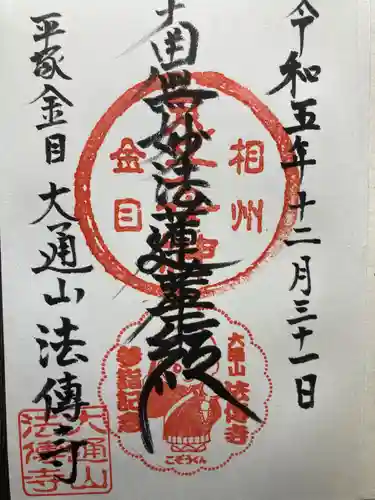 令和五年十二月三十一日
南無妙法蓮華経
平塚金目 大通山 法傳寺
相州
金目
大通山 法傳寺
参詣記念
こぞうくん
大通山
法傳寺